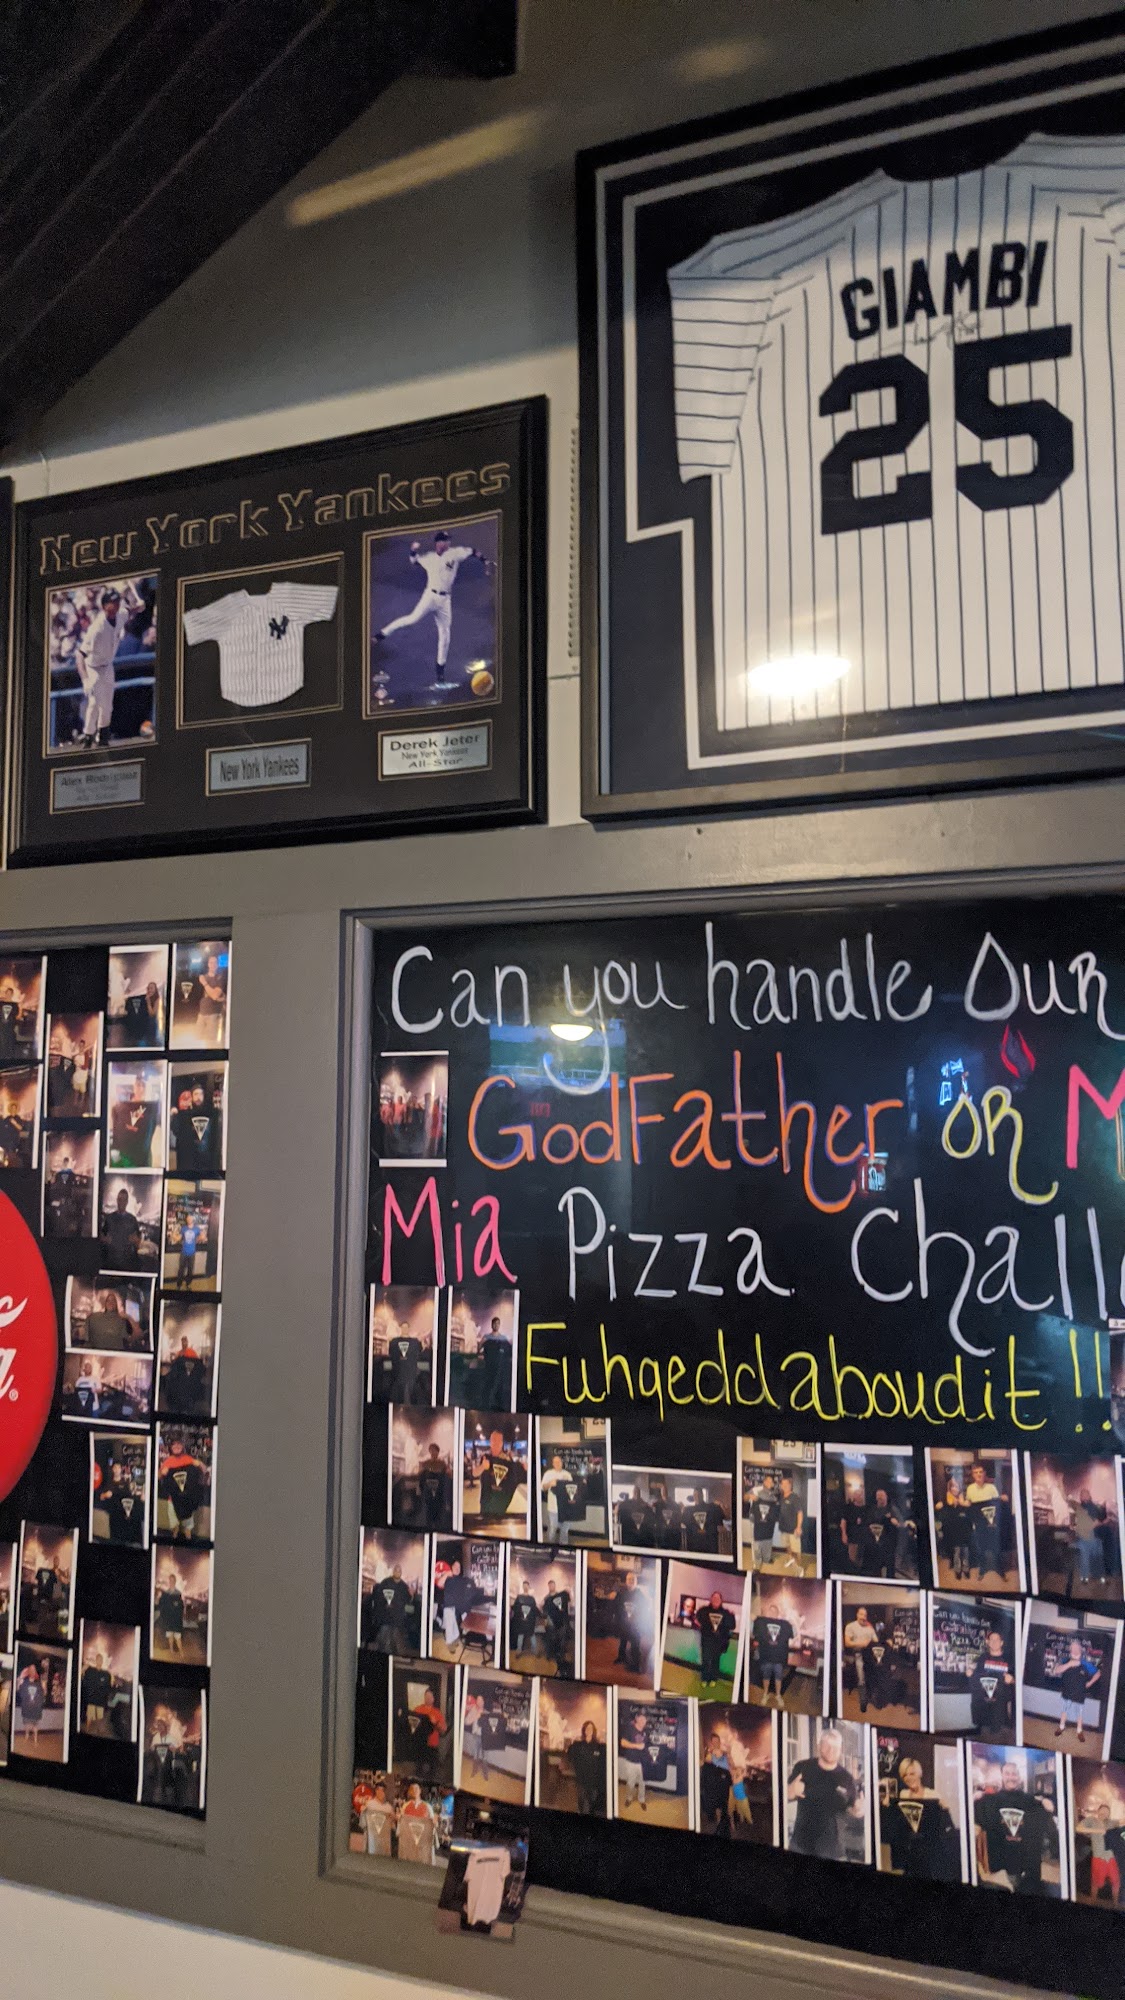 GIAMBI
25
New York Yankees
NY
Alex Rodriguez
New York Yankees
Derek Jeter
New York Yankees
All-Star
Can you handle Our
GodFather OR M
Mia Pizza Chall
Fuhgeddaboudit!!